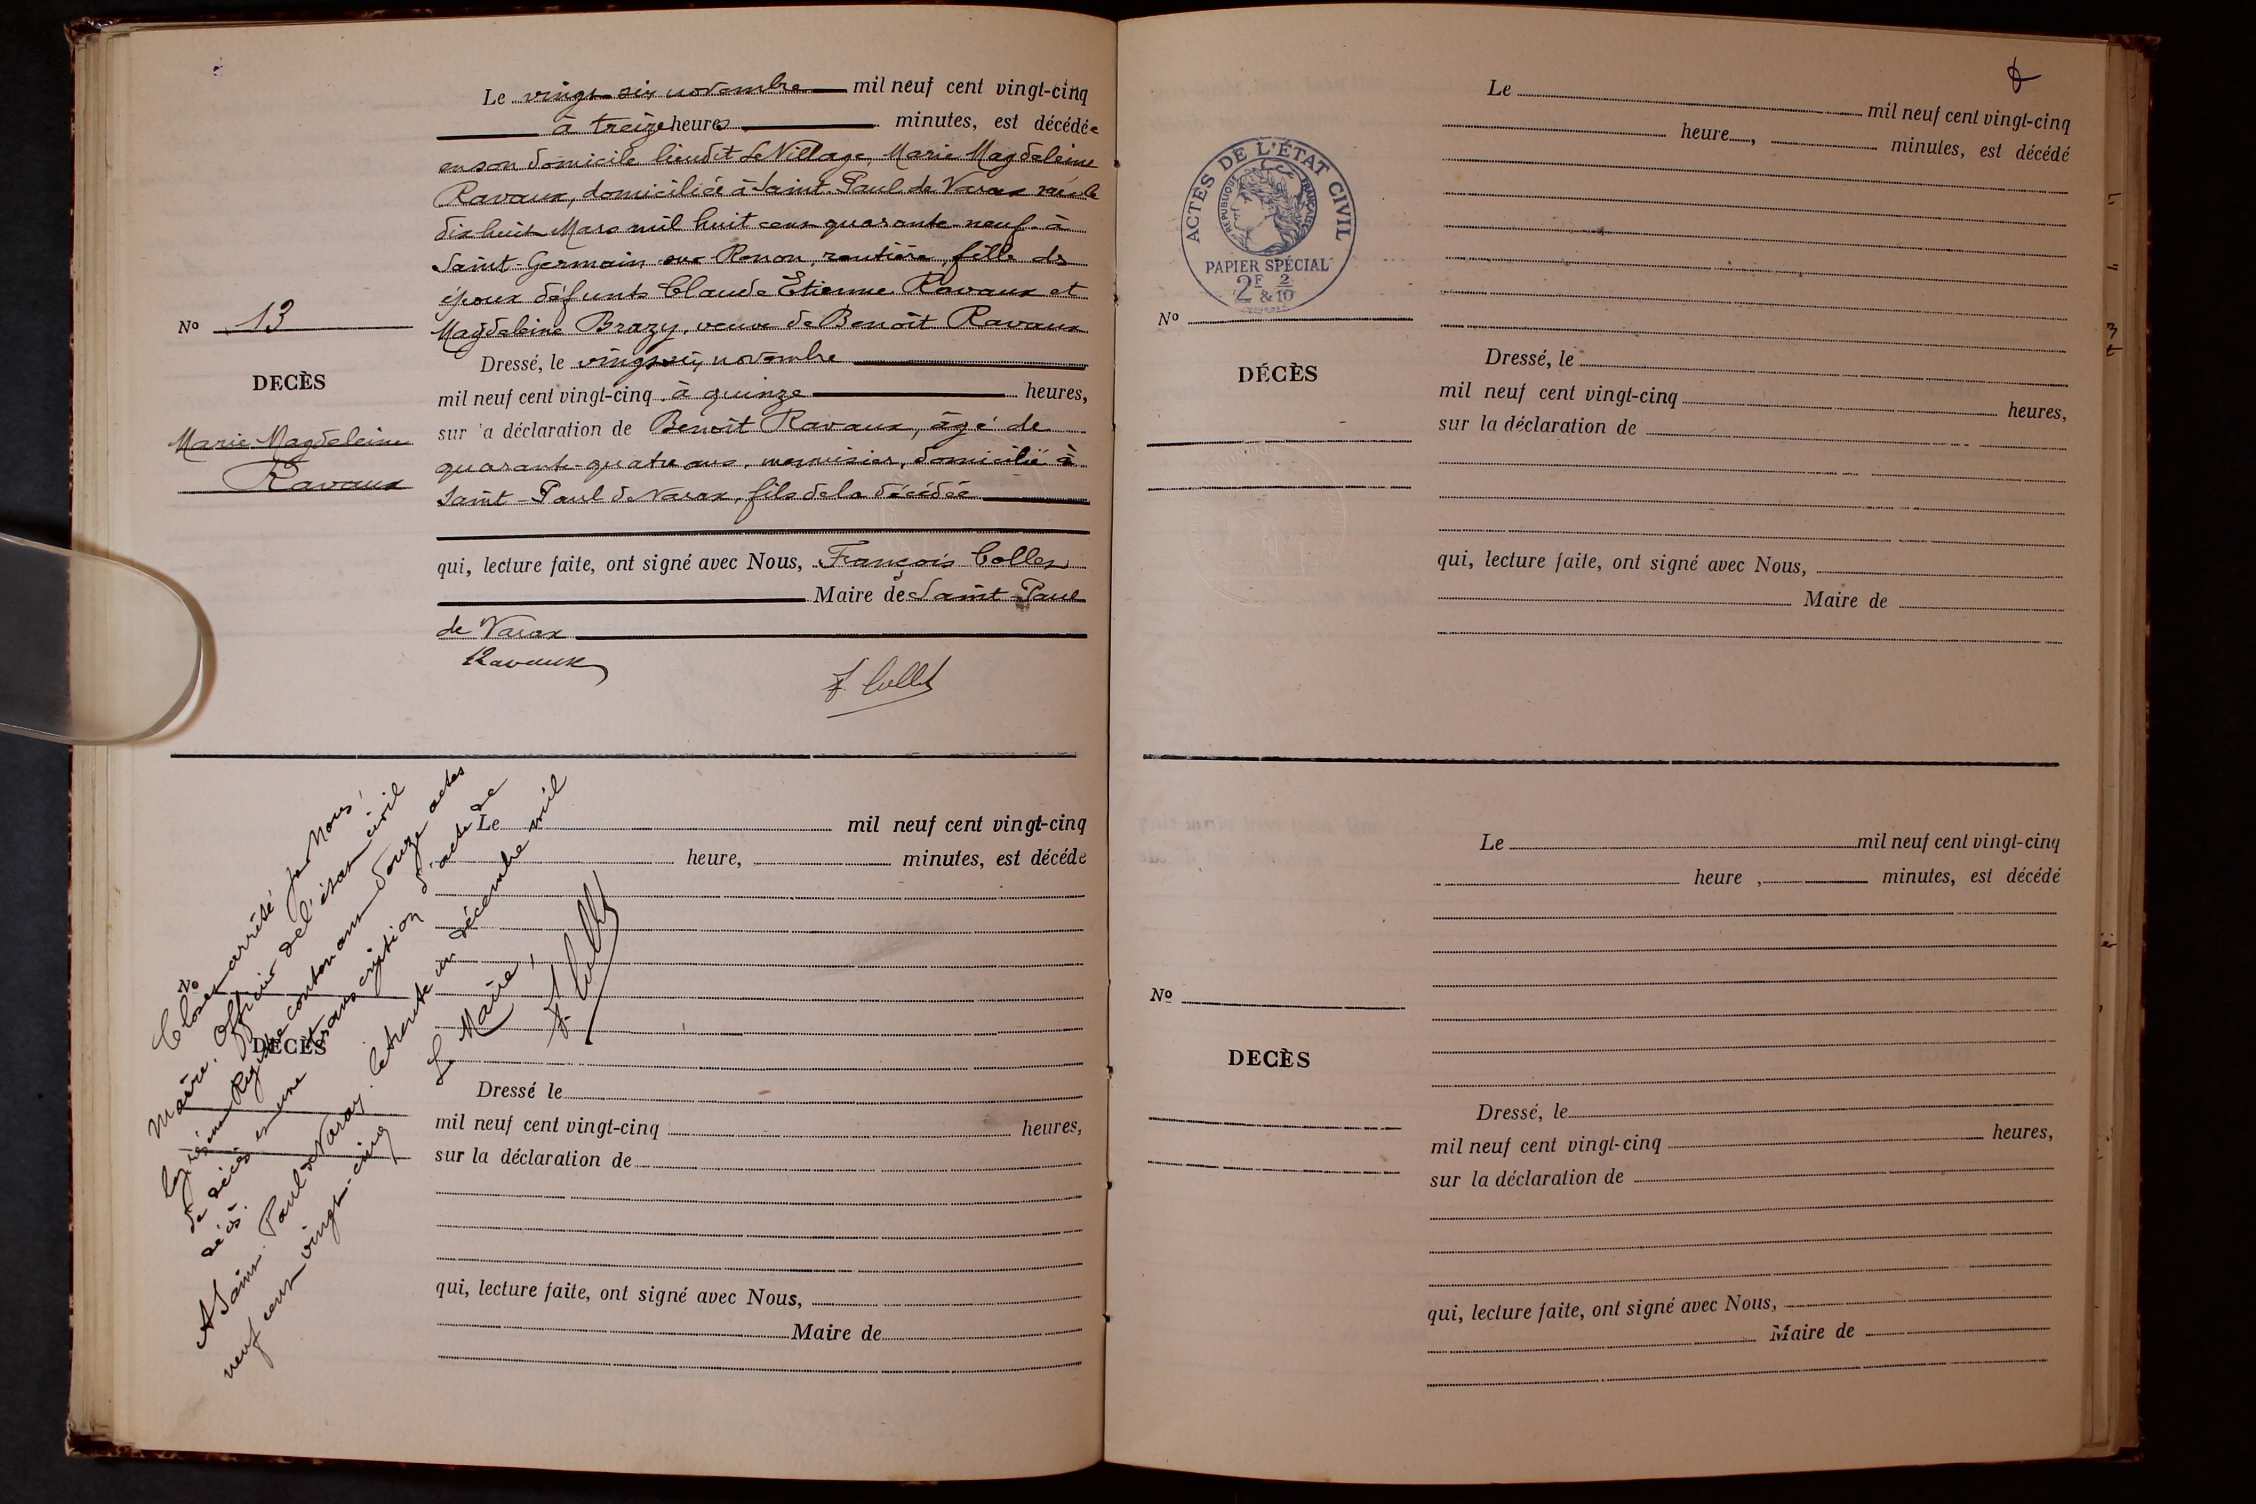 Le vingt-six novembre mil neuf cent vingt-cinq
à treize heures minutes, est décédée
en son domicile lieudit Le Village, Marie Magdeleine
Ravaux, domiciliée à Saint-Paul de Varax née le
dix huit Mars mil huit cent quarante-neuf à
Saint-Germain sur Renon, rentière, fille de
époux défunts Claude Étienne Ravaux et
Magdeleine Brazy, veuve de Benoît Ravaux
No 13
DECÈS
Marie Magdeleine
Ravaux
Dressé, le vingt-six novembre
mil neuf cent vingt-cinq à quinze heures,
sur la déclaration de Benoît Ravaux, âgé de
quarante-quatre ans, menuisier, domicilié à
Saint-Paul de Varax, fils de la décédée
qui, lecture faite, ont signé avec Nous, François Collet
Maire de Saint-Paul
de Varax
Ravaux
F. Collet
Le mil neuf cent vingt-cinq
heure, minutes, est décédé
No
DECÈS
Dressé le
mil neuf cent vingt-cinq heures,
sur la déclaration de
qui, lecture faite, ont signé avec Nous,
Maire de
Clos et arrêté par Nous,
Maire, Officier de l'état civil
le présent Registre contenant douze actes
de décès et une transcription d'acte de
décès.
A Saint-Paul de Varax, le trente un décembre mil
neuf cent vingt-cinq
Le Maire,
F. Collet
Le mil neuf cent vingt-cinq
heure, minutes, est décédé
ACTES DE L'ÉTAT CIVIL
RÉPUBLIQUE FRANÇAISE
PAPIER SPÉCIAL
2F & 2/10
No
DÉCÈS
Dressé, le
mil neuf cent vingt-cinq heures,
sur la déclaration de
qui, lecture faite, ont signé avec Nous,
Maire de
Le mil neuf cent vingt-cinq
heure, minutes, est décédé
No
DECÈS
Dressé, le
mil neuf cent vingt-cinq heures,
sur la déclaration de
qui, lecture faite, ont signé avec Nous,
Maire de